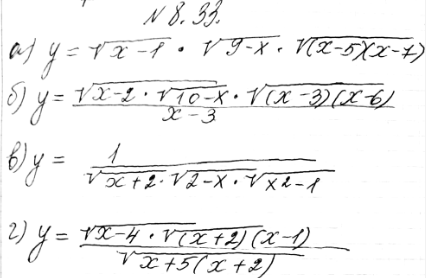 N 8.33.
а) y = √x-1 · √9-x · √(x-5)(x-7)
б) y = √x-2 · √10-x · √(x-3)(x-6)
x-3
в) y = 1
√x+2 · √2-x · √x2-1
г) y = √x-4 · √(x+2)(x-1)
√x+5(x+2)